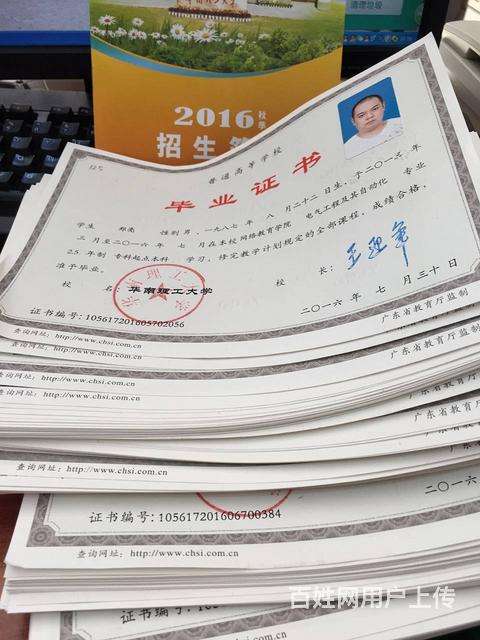 清理垃圾
2016 秋季
招生
普通高等学校
毕业证书
学生 郑亮 性别 男，一九八七年 八 月二十二日生，于二〇一三年
三 月至二〇一六年 七 月在本校 网络教育学院 电气工程及其自动化 专业
2.5 年制 专科起点本科 学习，修完教学计划规定的全部课程，成绩合格，
准予毕业。
校 名： 华南理工大学 校 长：
证书编号：105617201605702056 二〇一六年 七 月三十日
查询网址：http://www.chsi.com.cn 广东省教育厅监制
查询网址：http://www.chsi.com.cn 广东省教育厅监制
查询网址：http://www.chsi.com.cn
查询网址：http://www.chsi.com.cn 广东省教育厅监制
广东省教育厅监制
查询网址：http://www.chsi.com.cn
证书编号：105617201606700384 二〇一六
查询网址：http://www.chsi.com.cn
百姓网用户上传
证书编号：